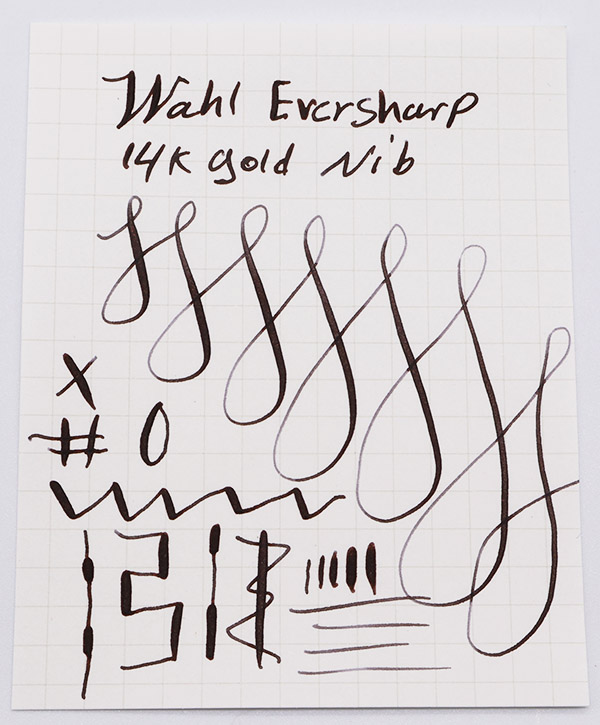 Wahl Eversharp
14K gold Nib
X
# 0